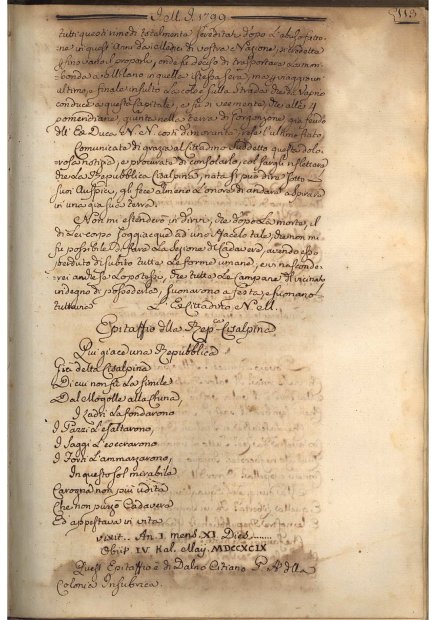 J. M. J. 1799
113
tutti questi rimedi totalmente screditati dopo l'abuso fatto-
ne in quest'anni da'
fino vario il proposto, onde fu deciso di trasportarla a
bonda a Milano in quella stessa sera, ma
ultimo, e finale insulto la colse sulla Strada che da Vaprio
conduce a questa Capitale, e fu si vemente, che alle 4
pomeridiane, giunta nella terra di Gorgonzola, già feudo
dell' Ex-Duca N. N. costì dimorante, esalò l'ultimo fiato.
Comunicate di grazia al Cittadino Suddetto questa dolo-
rosa notizia, e procurate di consolarlo, col fargli riflettere
che la Repubblica Cisalpina, nata si può dire sotto i
suoi Auspici, gli fece almeno l'onore di andare a spirare
in una già sua terra.
Non mi estenderò in dirvi, che dopo la morte, il
di lei corpo soggiacque ad uno sfacelo tale, che non mi
fu possibile di fare la sezione di Cadavero, avendo esso
perduto di subito tutte le forme umane, e vi nasconde-
rei anche se lo potessi, che tutte le Campane di
indegno di possederla, suonarono a festa, e suonano
tuttavia. Il Cittadino N. M.
Epitaffio della Rep.ca Cisalpina
Qui giace una Repubblica
Già detta Cisalpina
Di cui non fù la simile
Dal Mogolle alla China,
I Ladri la fondarono
I Pazzi l'esaltarono,
I Saggi l'esecrarono
I Forti l'ammazzarono,
In questo sol mirabile
Carogna non più udita
Che non puzzò Cadavera
Ed appestava in vita
Vixit.. An I mens XI. Dies.......
Obiit IV Kal. May. MDCCXCIX
Quest' Epitaffio è di Dalno Estiano P. A. della
Colonia Insubrica.